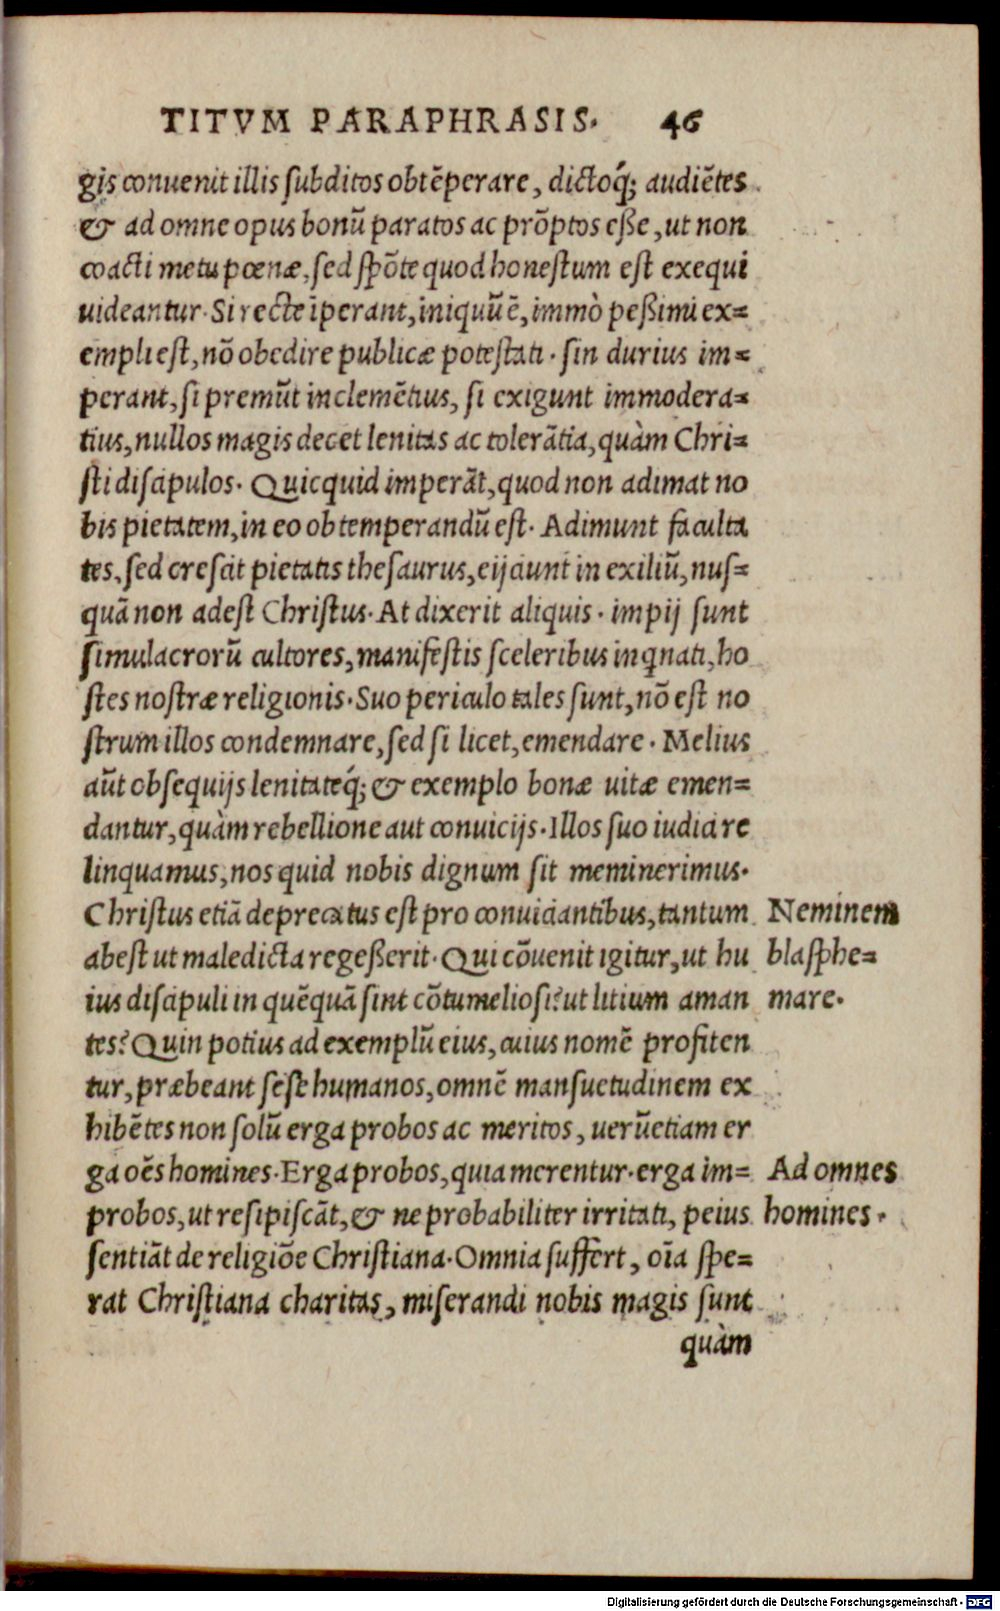 TITVM PARAPHRASIS. 46
gis conuenit illis ſubditos obtẽperare, dictoq́; audiẽtes
& ad omne opus bonũ paratos ac prõptos eſſe, ut non
coacti metu pœnæ, ſed ſpõte quod honeſtum eſt exequi
uideantur. Si recte ĩperant, iniquũ ẽ, immò peßimi ex=
empli eſt, nõ obedire publicæ poteſtati. ſin durius im=
perant, ſi premũt inclemẽtius, ſi exigunt immodera=
tius, nullos magis decet lenitas ac tolerãtia, quàm Chri=
ſti diſcipulos. Quicquid imperãt, quod non adimat no
bis pietatem, in eo obtemperandũ eſt. Adimunt faculta
tes, ſed creſcit pietatis theſaurus, eijciunt in exiliũ, nuſ=
quã non adeſt Chriſtus. At dixerit aliquis. impij ſunt
ſimulacrorũ cultores, manifeſtis ſceleribus inq̃nati, ho
ſtes noſtræ religionis. Suo periculo tales ſunt, nõ eſt no
ſtrum illos condemnare, ſed ſi licet, emendare. Melius
aũt obſequijs lenitateq́; & exemplo bonæ uitæ emen=
dantur, quàm rebellione aut conuicijs. Illos ſuo iudici re
linquamus, nos quid nobis dignum ſit meminerimus.
Chriſtus etiã deprecatus eſt pro conuiciantibus, tantum
Neminem
abeſt ut maledicta regeßerit. Qui cõuenit igitur, ut hu
blaſphe=
ius diſcipuli in quẽquã ſint cõtumelioſi? ut litium aman
mare.
tes? Quin potius ad exemplũ eius, cuius nomẽ profiten
tur, præbeant ſeſe humanos, omnẽ manſuetudinem ex
hibẽtes non ſolũ erga probos ac meritos, uerũetiam er
ga oẽs homines. Erga probos, quia merentur. erga im=
Ad omnes
probos, ut reſipiſcãt, & ne probabiliter irritati, peius
homines.
ſentiãt de religiõe Chriſtiana. Omnia ſuffert, oĩa ſpe=
rat Chriſtiana charitas, miſerandi nobis magis ſunt
quàm
Digitalisierung gefördert durch die Deutsche Forschungsgemeinschaft - DFG